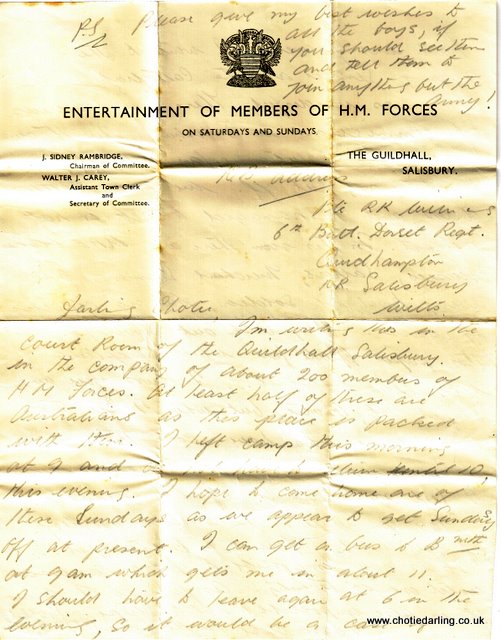 P.S. Please give my best wishes to
all the boys, if
you should see them
and tell them to
join anything but the
Army!
ENTERTAINMENT OF MEMBERS OF H.M. FORCES
ON SATURDAYS AND SUNDAYS
J. SIDNEY RAMBRIDGE,
Chairman of Committee.
WALTER J. CAREY,
Assistant Town Clerk
and
Secretary of Committee.
THE GUILDHALL,
SALISBURY.
address
Pte R.R.
6th Batt. Dorset Regt.
Quidhampton
NR Salisbury
Wilts
Darling Chotie
I'm writing this in the
Court Room of the Guildhall Salisbury.
in the company of about 200 members of
H M Forces. At least half of these are
Australians as this place is packed
with them. I left camp this morning
at 9 and until 10
this evening. I hope to come home one of
these Sundays as we appear to get Sundays
off at present. I can get a bus to B'mth
at 9am which gets me in about 11.
I should have to leave again at 6 in the
evening, so it would be a case
www.chotiedarling.co.uk